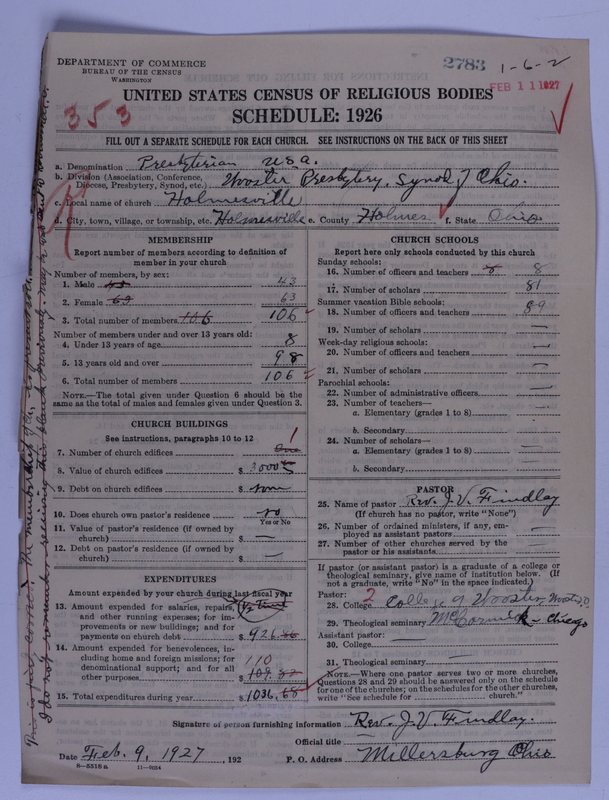 DEPARTMENT OF COMMERCE
BUREAU OF THE CENSUS
WASHINGTON
2783
1-6-2
FEB 11 1927
353
UNITED STATES CENSUS OF RELIGIOUS BODIES
SCHEDULE: 1926
FILL OUT A SEPARATE SCHEDULE FOR EACH CHURCH. SEE INSTRUCTIONS ON THE BACK OF THIS SHEET
a. Denomination Presbyterian U.S.A.
b. Division (Association, Conference, Diocese, Presbytery, Synod, etc.) Wooster Presbytery, Synod of Ohio.
c. Local name of church Holmesville
d. City, town, village, or township, etc. Holmesville e. County Holmes f. State Ohio
MEMBERSHIP
Report number of members according to definition of member in your church
Number of members, by sex:
1. Male 43
2. Female 63 63
3. Total number of members 106 106
Number of members under and over 13 years old:
4. Under 13 years of age 8
5. 13 years old and over 98
6. Total number of members 106
NOTE.—The total given under Question 6 should be the same as the total of males and females given under Question 3.
CHURCH BUILDINGS
See instructions, paragraphs 10 to 12
7. Number of church edifices One 1
8. Value of church edifices $ 3000
9. Debt on church edifices $ none
10. Does church own pastor's residence? no
Yes or No
11. Value of pastor's residence (if owned by church) $ —
12. Debt on pastor's residence (if owned by church) $ —
EXPENDITURES
Amount expended by your church during last fiscal year
13. Amount expended for salaries, repairs, and other running expenses; for improvements or new buildings; and for payments on church debt $ 926.
14. Amount expended for benevolences, including home and foreign missions; for denominational support; and for all other purposes 110 $ 109.
15. Total expenditures during year $ 1036.
CHURCH SCHOOLS
Report here only schools conducted by this church
Sunday schools:
16. Number of officers and teachers 8
17. Number of scholars 81
Summer vacation Bible schools:
18. Number of officers and teachers 89
19. Number of scholars —
Week-day religious schools:
20. Number of officers and teachers —
21. Number of scholars —
Parochial schools:
22. Number of administrative officers —
23. Number of teachers—
a. Elementary (grades 1 to 8) —
b. Secondary
24. Number of scholars—
a. Elementary (grades 1 to 8) —
b. Secondary
PASTOR
25. Name of pastor Rev. J. V. Findlay
(If church has no pastor, write "None")
26. Number of ordained ministers, if any, employed as assistant pastors —
27. Number of other churches served by the pastor or his assistants
If pastor (or assistant pastor) is a graduate of a college or theological seminary, give name of institution below. (If not a graduate, write "No" in the space indicated.)
Pastor: 2
28. College College of Wooster, Wooster, O.
29. Theological seminary McCormick - Chicago
Assistant pastor: —
30. College
31. Theological seminary —
NOTE.—Where one pastor serves two or more churches, Questions 28 and 29 should be answered only on the schedule for one of the churches; on the schedules for the other churches, write "See schedule for church."
Signature of person furnishing information Rev. J. V. Findlay.
Official title
Date Feb. 9, 1927, 192 P. O. Address Millersburg Ohio
8—5518a 11—9634